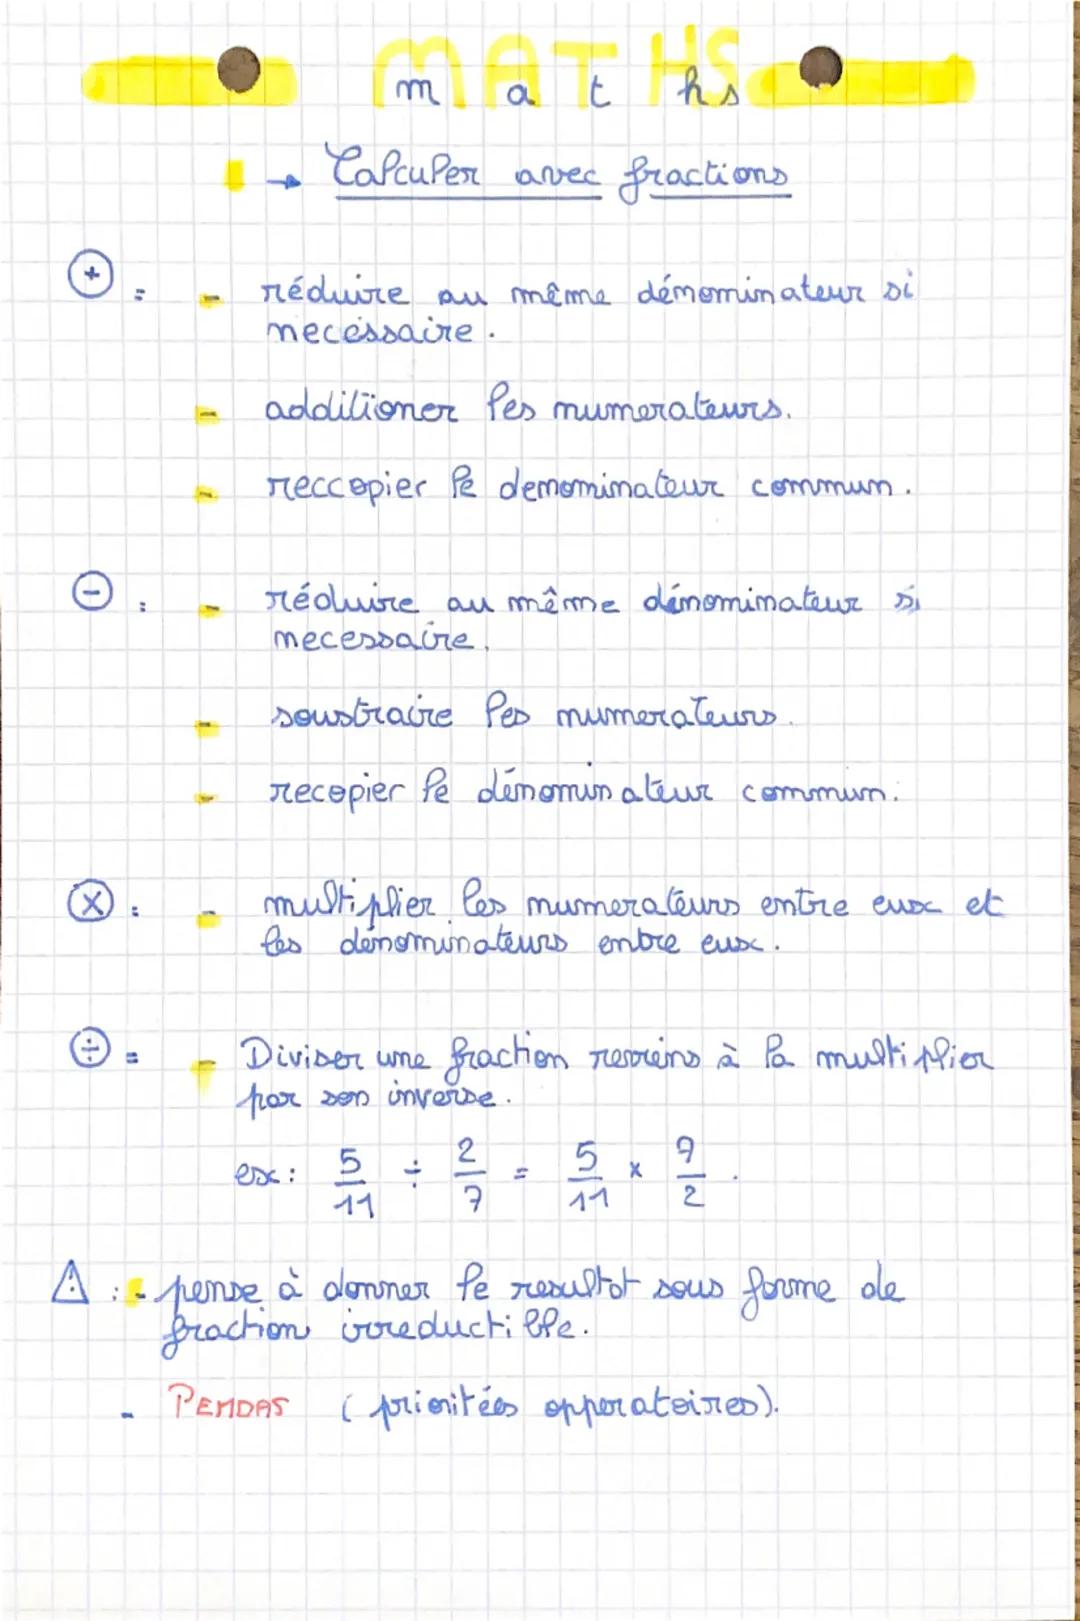 MATHS
maths
→ Calculer avec fractions
+ : - réduire au même dénominateur si
necéssaire.
- additioner les numerateurs.
- reccopier le denominateur commun.
- : - réduire au même dénominateur si
necessaire.
- soustraire les numerateurs.
- recopier le dénominateur commun.
× : - multiplier les numerateurs entre eux et
les dénominateurs entre eux.
÷ = - Diviser une fraction reviens à la multiplier
par son inverse.
ex: 5/11 ÷ 2/7 = 5/11 × 7/2.
⚠ : - pense à donner le resultat sous forme de
fraction irreductible.
- PEMDAS (prioritées opperatoires).